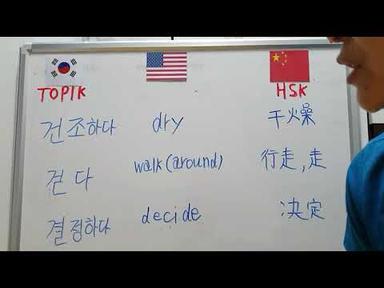 TOPIK HSK
건조하다 dry 干燥
걷다 walk(around) 行走,走
결정하다 decide 决定